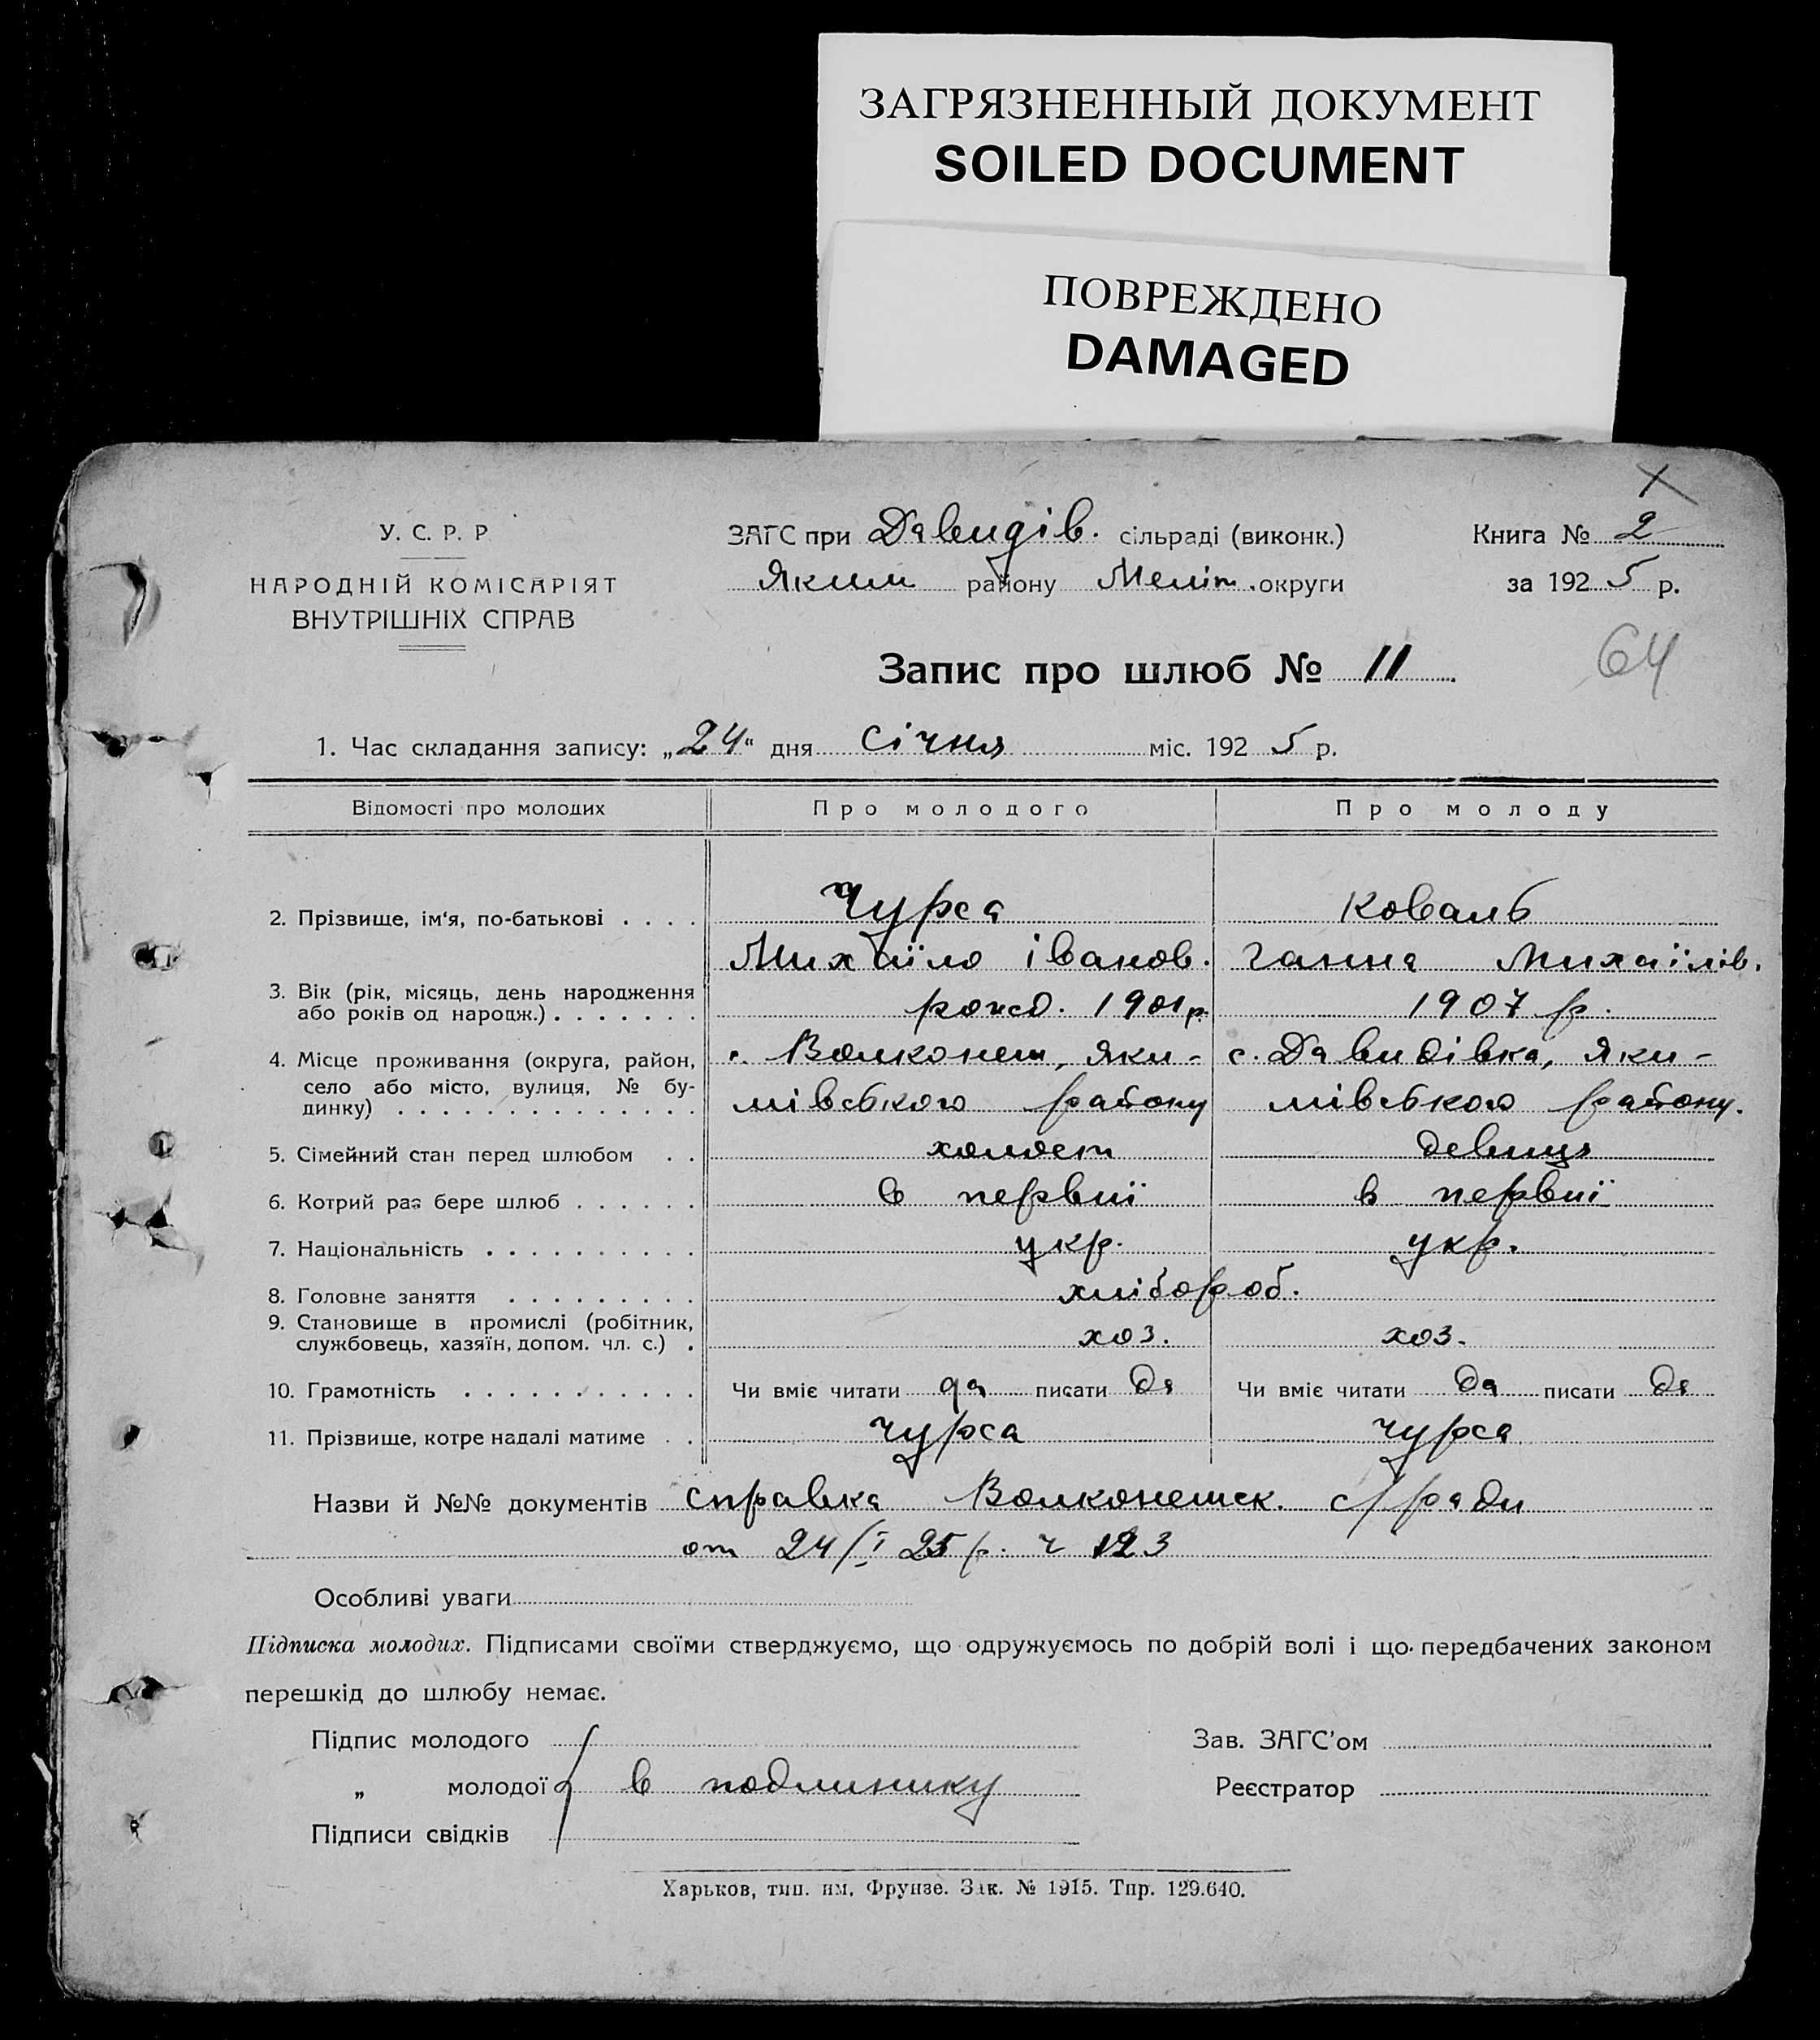 ЗАГРЯЗНЕННЫЙ ДОКУМЕНТ
SOILED DOCUMENT
ПОВРЕЖДЕНО
DAMAGED
У. С. Р. Р
НАРОДНІЙ КОМІСАРІЯТ
ВНУТРІШНІХ СПРАВ
ЗАГС при Давидів. сільраді (виконк.)
Яким району Меліт. округи
Книга № 2
за 1925 р.
64
Запис про шлюб № 11
1. Час складання запису: „24“ дня січня міс. 1925 р.
Відомості про молодих Про молодого Про молоду
2. Прізвище, ім‘я, по-батькові . . . . Чурса Коваль
Михаїло Іванов. Ганна Михаїлів.
3. Вік (рік, місяць, день народження
або років од народж.) . . . . . . . рожд. 1901 р. 1907 р.
4. Місце проживання (округа, район,
село або місто, вулиця, № бу-
динку) . . . . . . . . . . . . . . .
с. Волконеш, Яки- с. Давидівка, Яки-
мівського району мівського району.
5. Сімейний стан перед шлюбом . . холост девиця
6. Котрий раз бере шлюб . . . . . . в первиї в первиї
7. Національність . . . . . . . . . . укр. укр.
8. Головне заняття . . . . . . . . . хлібороб.
9. Становище в промислі (робітник,
службовець, хазяїн, допом. чл. с.) . хоз. хоз.
10. Грамотність . . . . . . . . . . . Чи вміє читати да писати да Чи вміє читати да писати да
11. Прізвище, котре надалі матиме . . Чурса Чурса
Назви й №№ документів справка Волконешск. с/ради
от 24/I 25 р. ч 123
Особливі уваги
Підписка молодих. Підписами своїми стверджуємо, що одружуємось по добрій волі і що передбачених законом
перешкід до шлюбу немає.
Підпис молодого
„ молодої в подлинику
Підписи свідків
Зав. ЗАГС’ом
Реєстратор
Харьков, тип. им. Фрунзе. Зак. № 1915. Тир. 129.640.